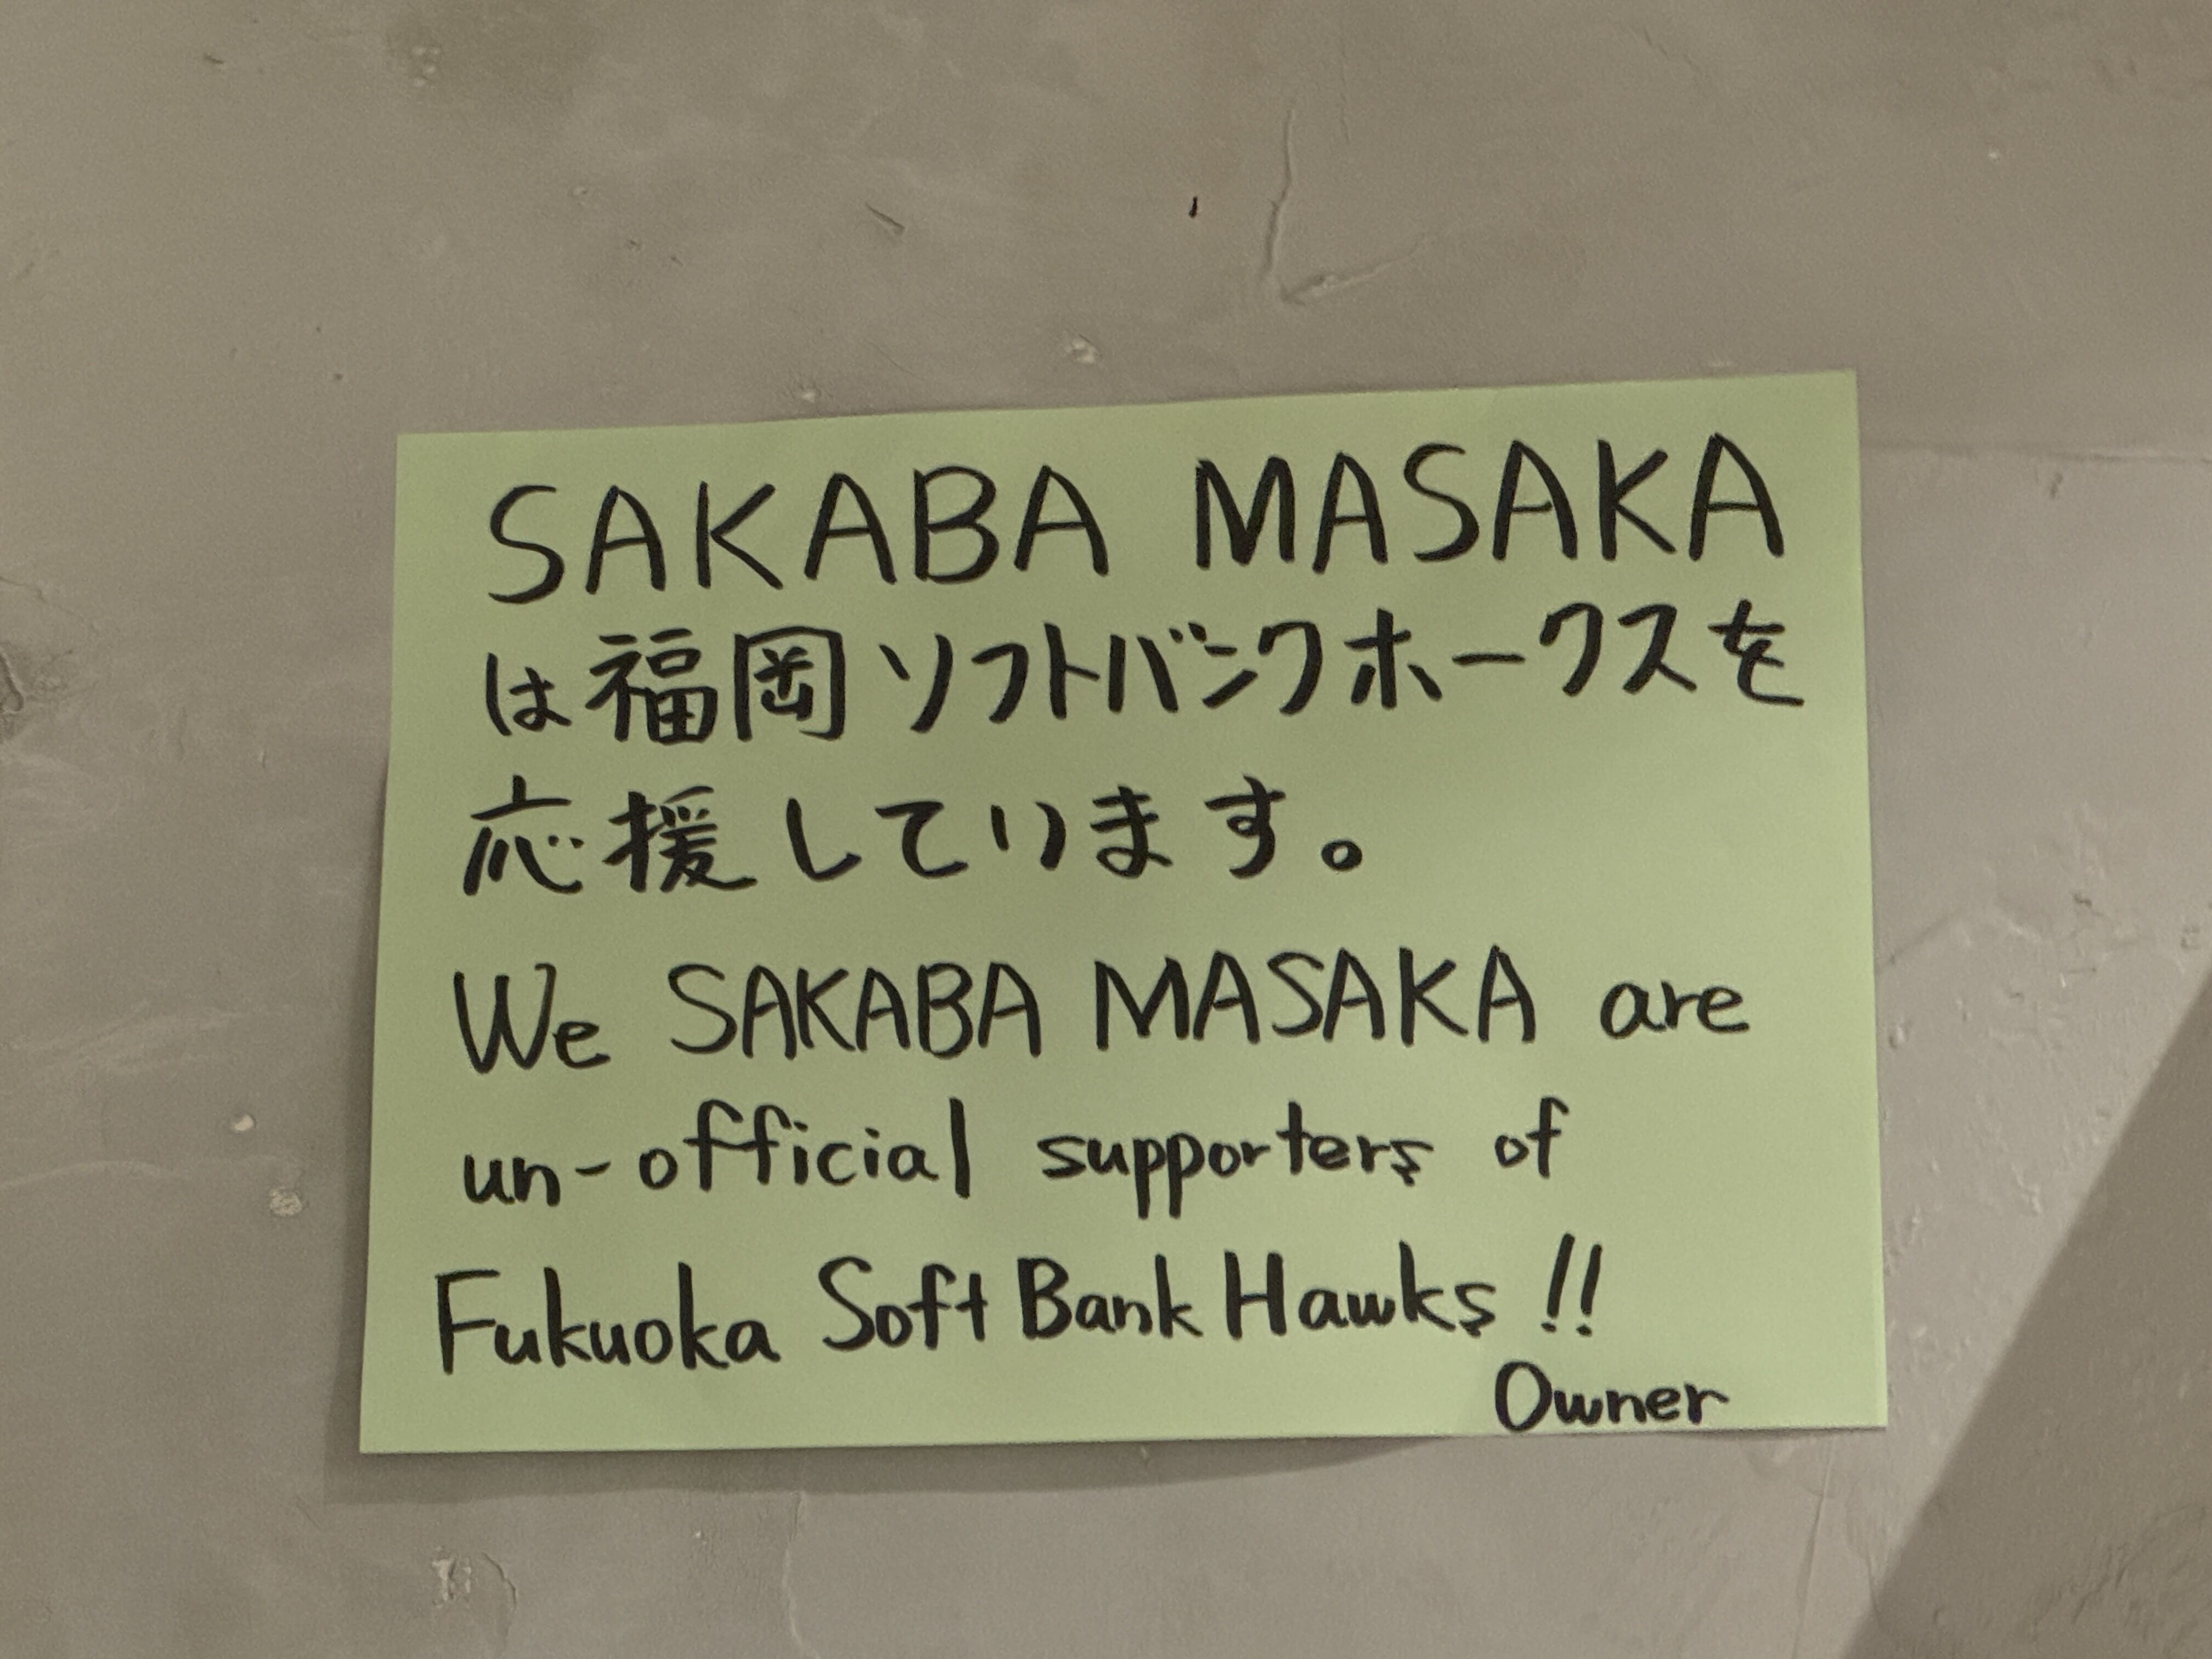 SAKABA MASAKA
は福岡ソフトバンクホークスを
応援しています。
We SAKABA MASAKA are
un-official supporters of
Fukuoka Soft Bank Hawks!!
Owner